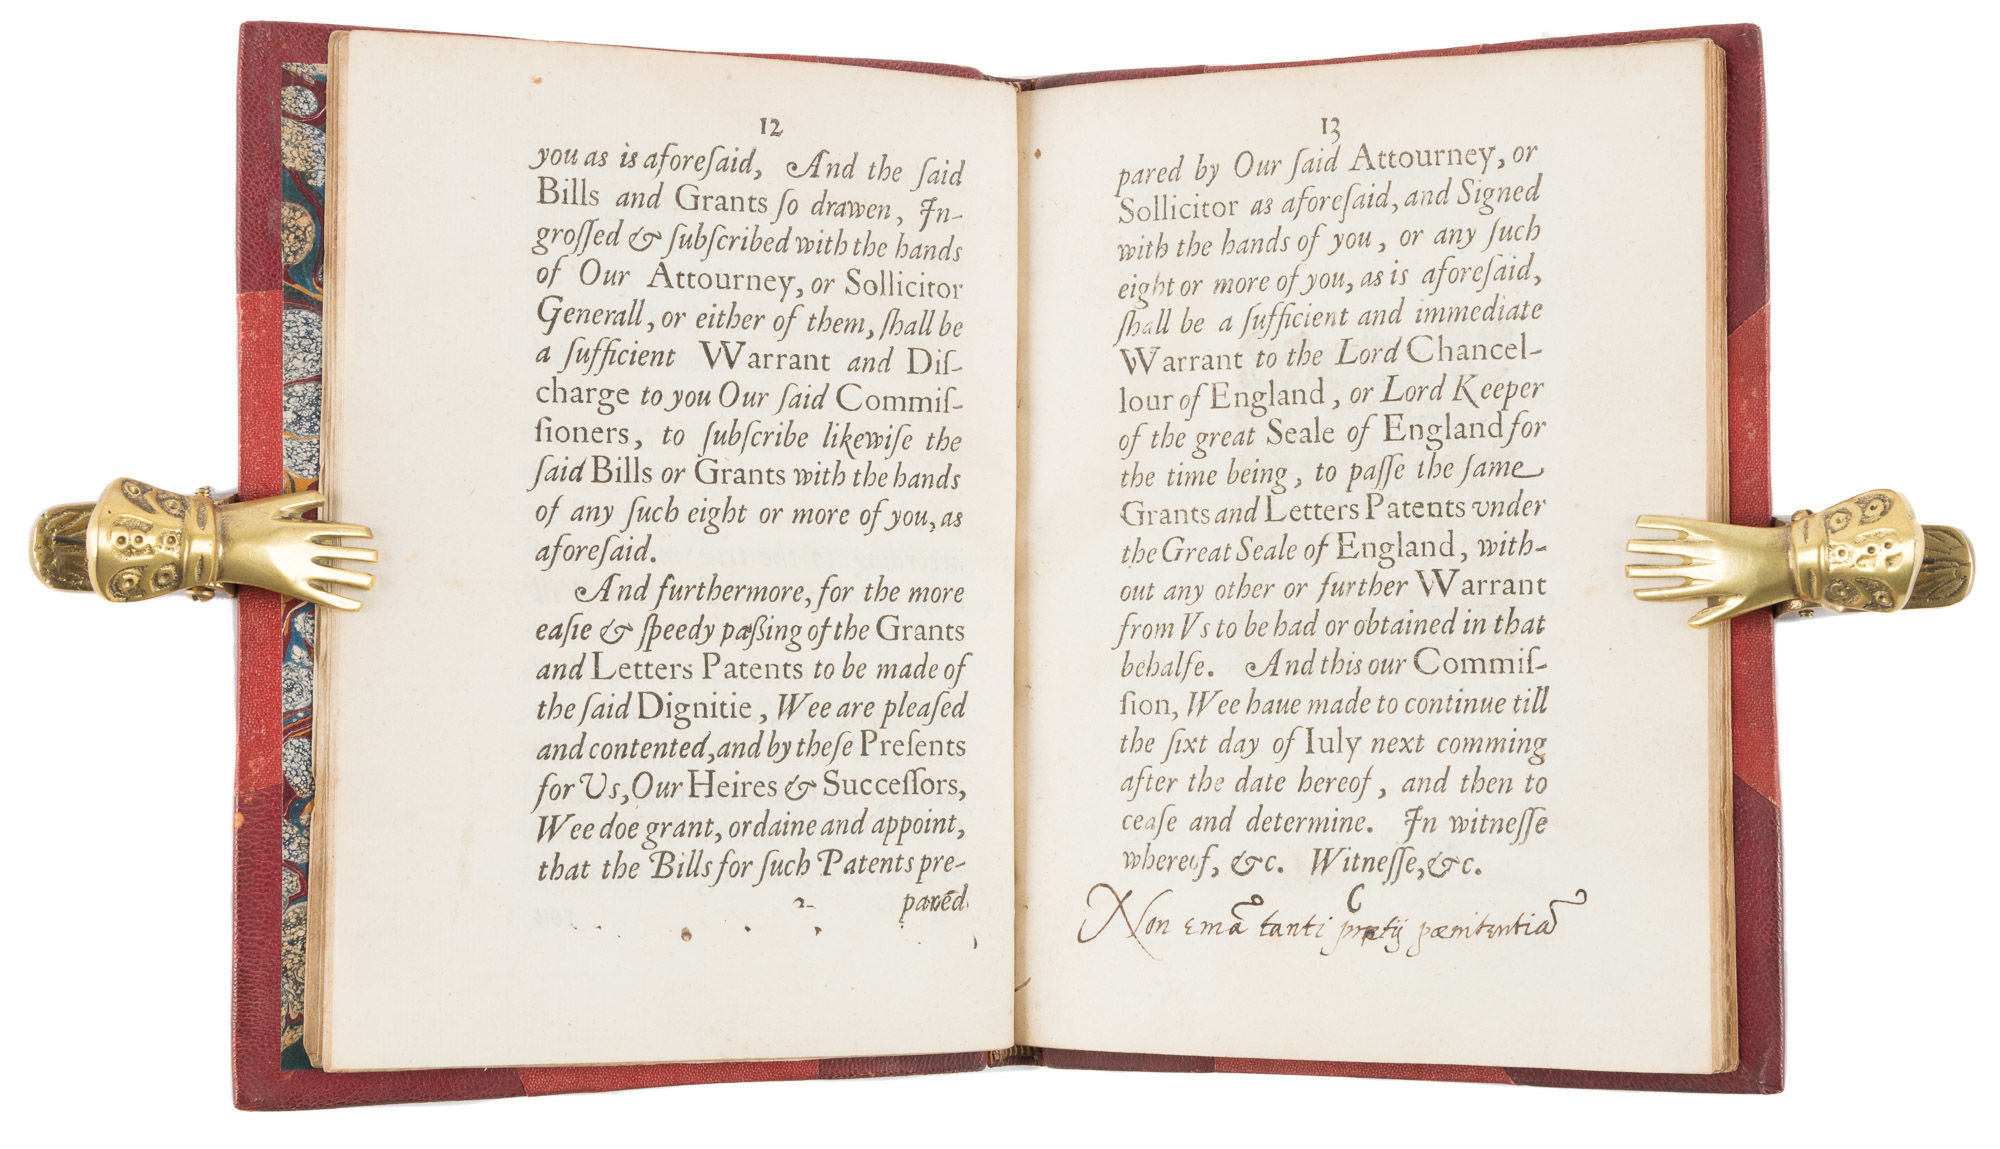 12
you as is aforeſaid, And the ſaid
Bills and Grants ſo drawen, In-
groſſed & ſubſcribed with the hands
of Our Attourney, or Sollicitor
Generall, or either of them, ſhall be
a ſufficient Warrant and Diſ-
charge to you Our ſaid Commiſ-
ſioners, to ſubſcribe likewiſe the
ſaid Bills or Grants with the hands
of any ſuch eight or more of you, as
aforeſaid.
And furthermore, for the more
eaſie & ſpeedy paßing of the Grants
and Letters Patents to be made of
the ſaid Dignitie, Wee are pleaſed
and contented, and by theſe Preſents
for Us, Our Heires & Succeſſors,
Wee doe grant, ordaine and appoint,
that the Bills for ſuch Patents pre-
2
13
pared by Our ſaid Attourney, or
Sollicitor as aforeſaid, and Signed
with the hands of you, or any ſuch
eight or more of you, as is aforeſaid,
ſhall be a ſufficient and immediate
Warrant to the Lord Chancel-
lour of England, or Lord Keeper
of the great Seale of England for
the time being, to paſſe the ſame
Grants and Letters Patents vnder
the Great Seale of England, with-
out any other or further Warrant
from Vs to be had or obtained in that
behalfe. And this our Commiſ-
ſion, Wee haue made to continue till
the ſixt day of Iuly next comming
after the date hereof, and then to
ceaſe and determine. In witneſſe
whereof, &c. Witneſſe, &c.
Non emā tanti pœnitentiā